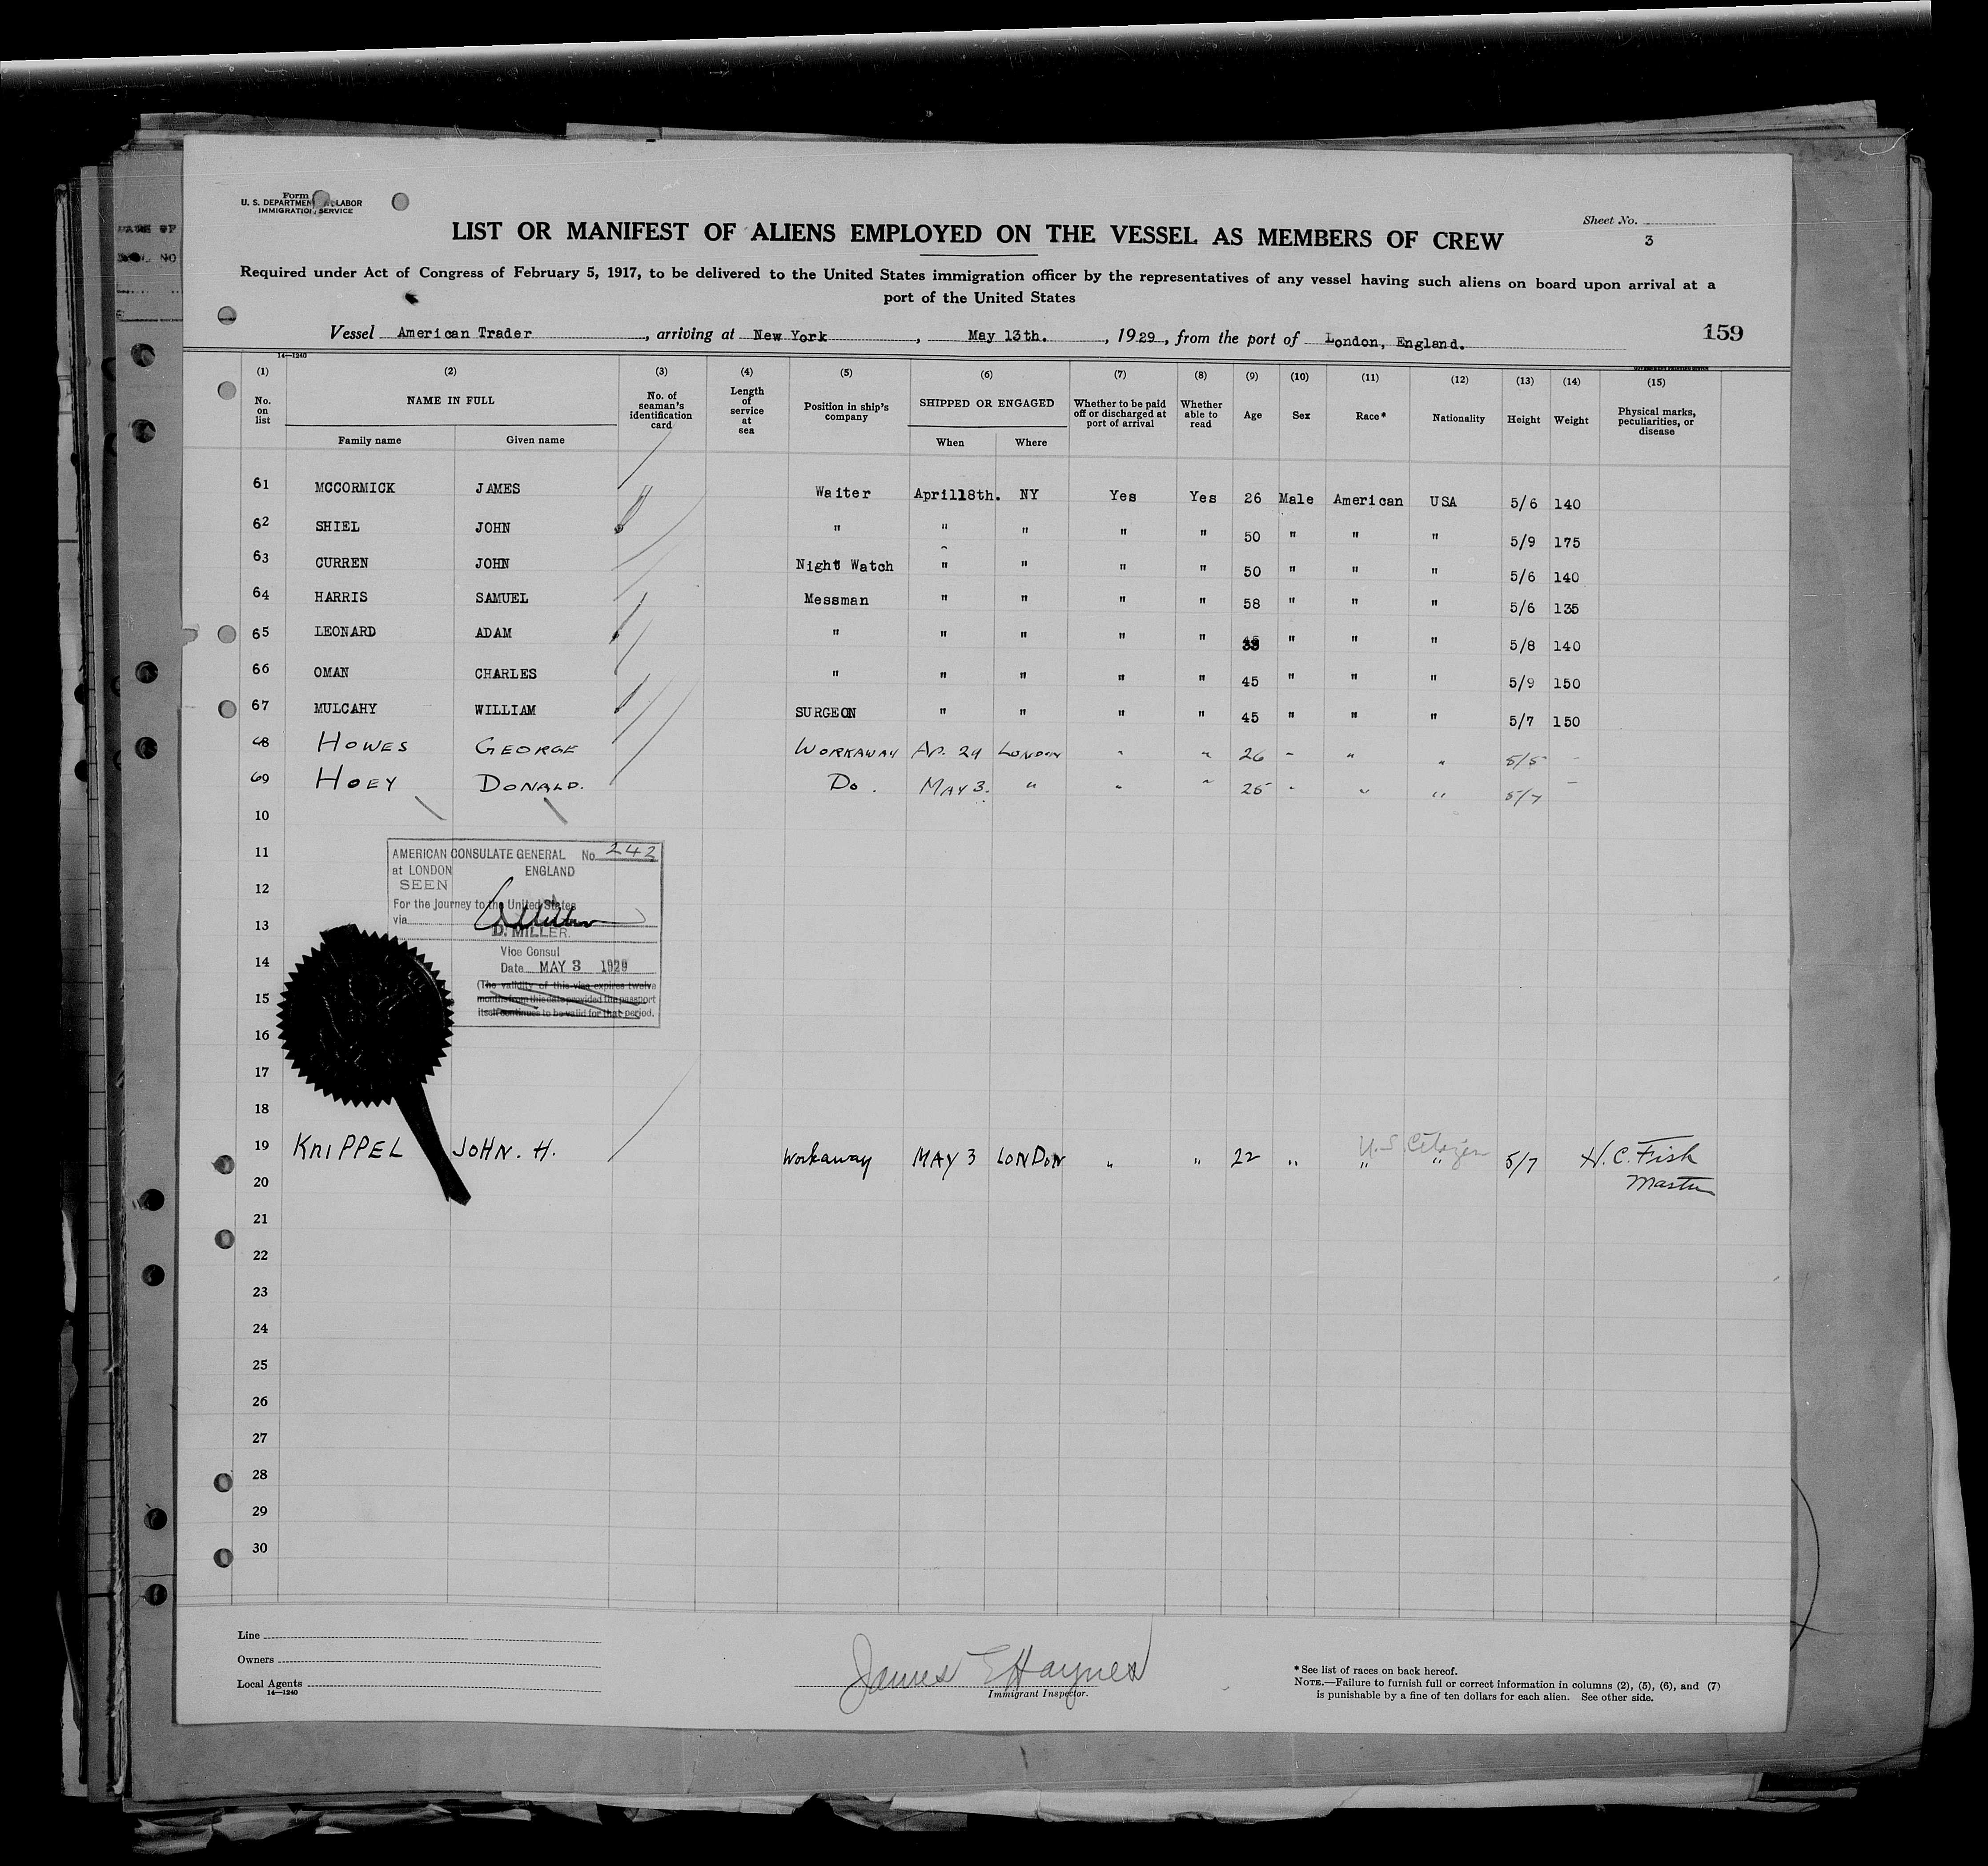 Form
U. S. DEPARTMENT LABOR
IMMIGRATION SERVICE
Sheet No.
3
LIST OR MANIFEST OF ALIENS EMPLOYED ON THE VESSEL AS MEMBERS OF CREW
Required under Act of Congress of February 5, 1917, to be delivered to the United States immigration officer by the representatives of any vessel having such aliens on board upon arrival at a
port of the United States
Vessel American Trader, arriving at New York, May 13th., 1929, from the port of London, England.
159
14—1240
(1) (2) (3) (4) (5) (6) (7) (8) (9) (10) (11) (12) (13) (14) (15)
No. on list
NAME IN FULL
Family name Given name
No. of seaman's identification card
Length of service at sea
Position in ship's company
SHIPPED OR ENGAGED
When Where
Whether to be paid off or discharged at port of arrival
Whether able to read
Age
Sex
Race*
Nationality
Height
Weight
Physical marks, peculiarities, or disease
61 MCCORMICK JAMES Waiter April18th. NY Yes Yes 26 Male American USA 5/6 140
62 SHIEL JOHN " " " " " 50 " " " 5/9 175
63 CURREN JOHN Night Watch " " " " 50 " " " 5/6 140
64 HARRIS SAMUEL Messman " " " " 58 " " " 5/6 135
65 LEONARD ADAM " " " " " 33 " " " 5/8 140
66 OMAN CHARLES " " " " " 45 " " " 5/9 150
67 MULCAHY WILLIAM SURGEON " " " " 45 " " " 5/7 150
68 HOWES GEORGE WORKAWAY AP. 24 LONDON " " 26 " " " 5/5 -
69 HOEY DONALD. Do. MAY 3. " " " 25 " " " 5/7 -
10
11
12
13
14
15
16
17
18
AMERICAN CONSULATE GENERAL No. 242
at LONDON ENGLAND
SEEN
For the journey to the United States
via
D. MILLER.
Vice Consul
Date MAY 3 1929
(The validity of this visa expires twelve
months from this date provided the passport
itself continues to be valid for that period.
U.S. Citizen
19 KNIPPEL JOHN. H. Workaway MAY 3 LONDON " " 22 " " " 5/7 H. C. Fish
Master
20
21
22
23
24
25
26
27
28
29
30
Line
Owners
Local Agents
14—1240
James E Haynes
Immigrant Inspector.
* See list of races on back hereof.
NOTE.—Failure to furnish full or correct information in columns (2), (5), (6), and (7)
is punishable by a fine of ten dollars for each alien. See other side.